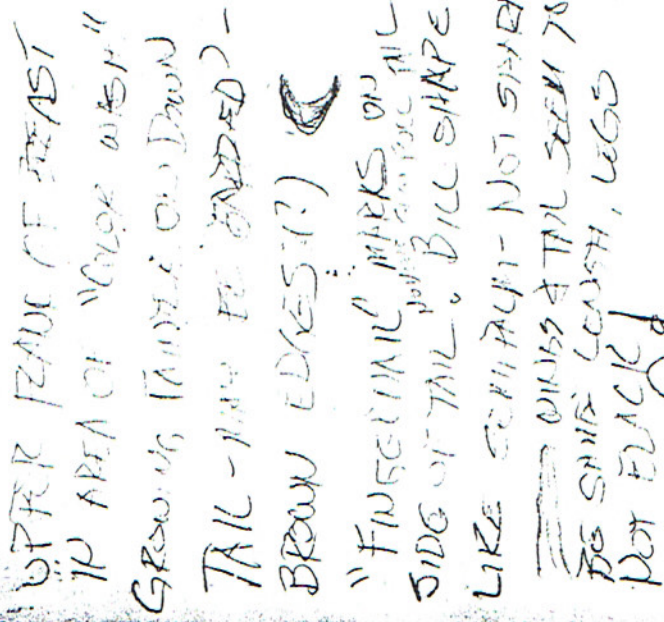 UPPER FLANK OF BREAST
IN AREA OF "COLOR WASH"
GROWING FAINTER ON DOWN
TAIL - MAY BE BANDED) -
BROWN EDGES (?)
"FINGERNAIL" MARKS ON
SIDE OF TAIL. BILL SHAPE
LIKE SEMIPALM - NOT
WINGS & TAIL SEEM TO
BE SAME LENGTH, LEGS
NOT BLACK